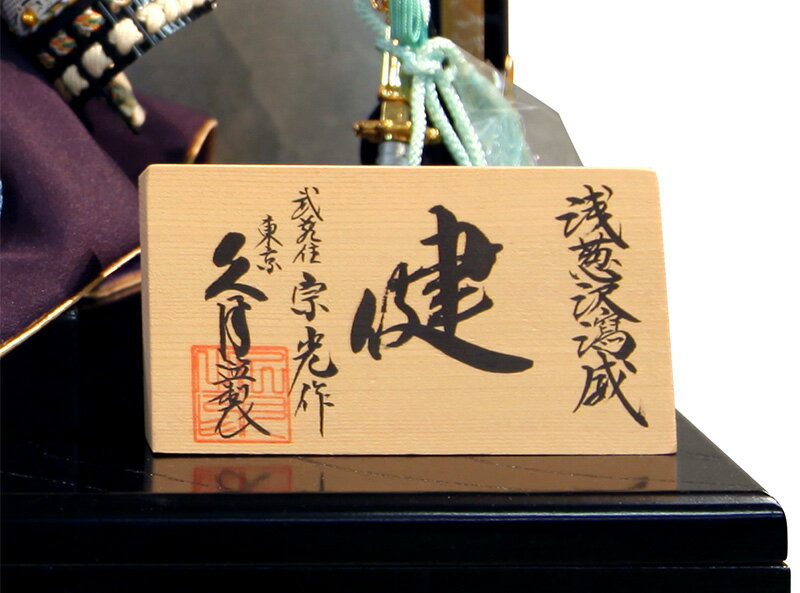 浅葱沢瀉威
健
武蔵住
宗光作
東京
久月謹製